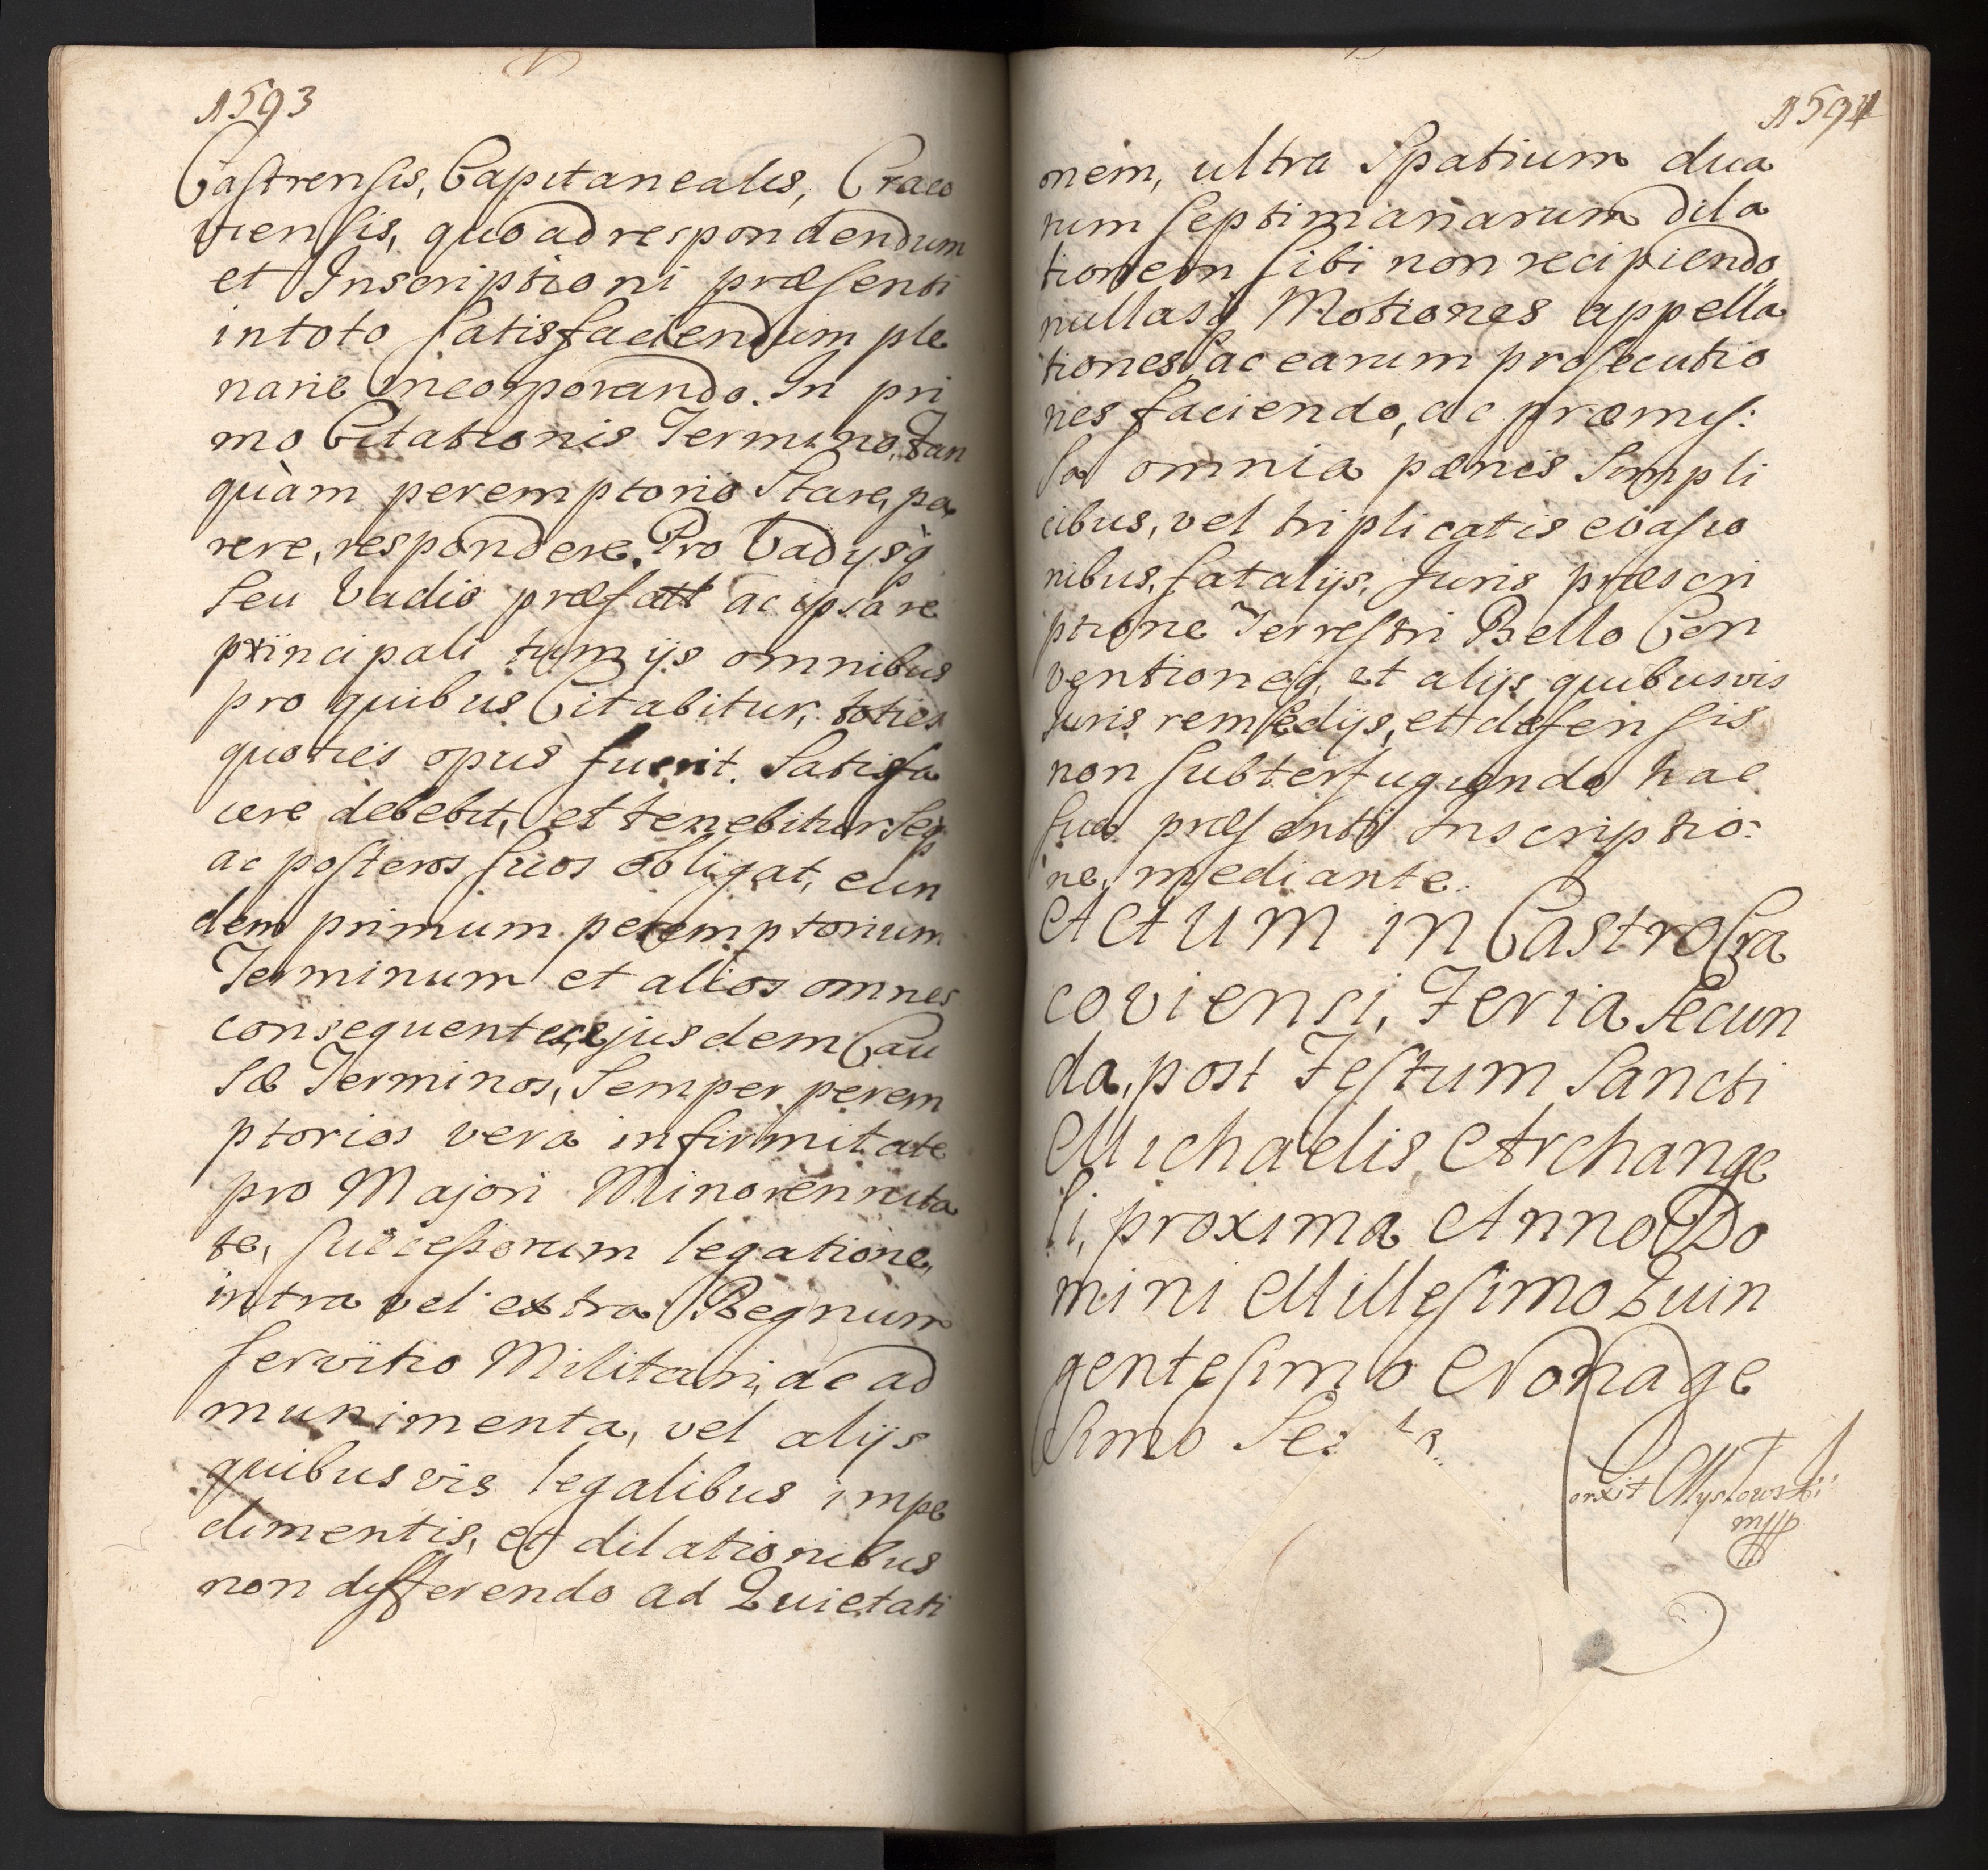 1593
Castrensis, Capitanealis, Craco
viensis, quo ad respondendum
et Inscriptioni præsenti
in toto satisfaciendum ple
narie incorporando. In pri
mo Citationis Termino, tan
quàm peremptorio Stare, pa
rere, respondere. Pro Vadysq̃
seu Vadio præfatt ac ipsa re
principali tum ijs omnibus
pro quibus Citabitur, toties
quoties opus fuerit. Satisfa
cere debebit, et tenebitur seq̃
ac posteros suos obligat, eun
dem primum peremptorium
Terminum et alios omnes
consequentes ejusdem Cau
sæ Terminos, Semper perem
ptorios vera infirmitate
pro Majori Minorennita
te, successorum legatione,
intra vel extra Regnum
servitio Militari, ac ad
munimenta, vel alijs
quibusvis legalibus impe
dimentis, et dilationibus
non differendo ad Quietati
1594
onem, ultra Spatium dua
rum septimanarum dila
tionem sibi non recipiendo
nullasq̃ Motiones appella
tiones, ac earum prosecutio
nes faciendo, ac præmis:
sa omnia pænis simpli
cibus, vel triplicatis evasio
nibus, fatalijs, Juris præscri
ptione Terrestri Bello Con
ventioneq̃, et alijs quibusvis
Juris remedijs, et defensis
non subterfugiendo hac
sua præsenti Inscriptio:
ne, mediante.
Actum in Castro Cra
coviensi, Feria Secun
da, post Festum Sancti
Michaelis Archange
li, proxima Anno Do
mini Millesimo Quin
gentesimo Nonage
simo Se